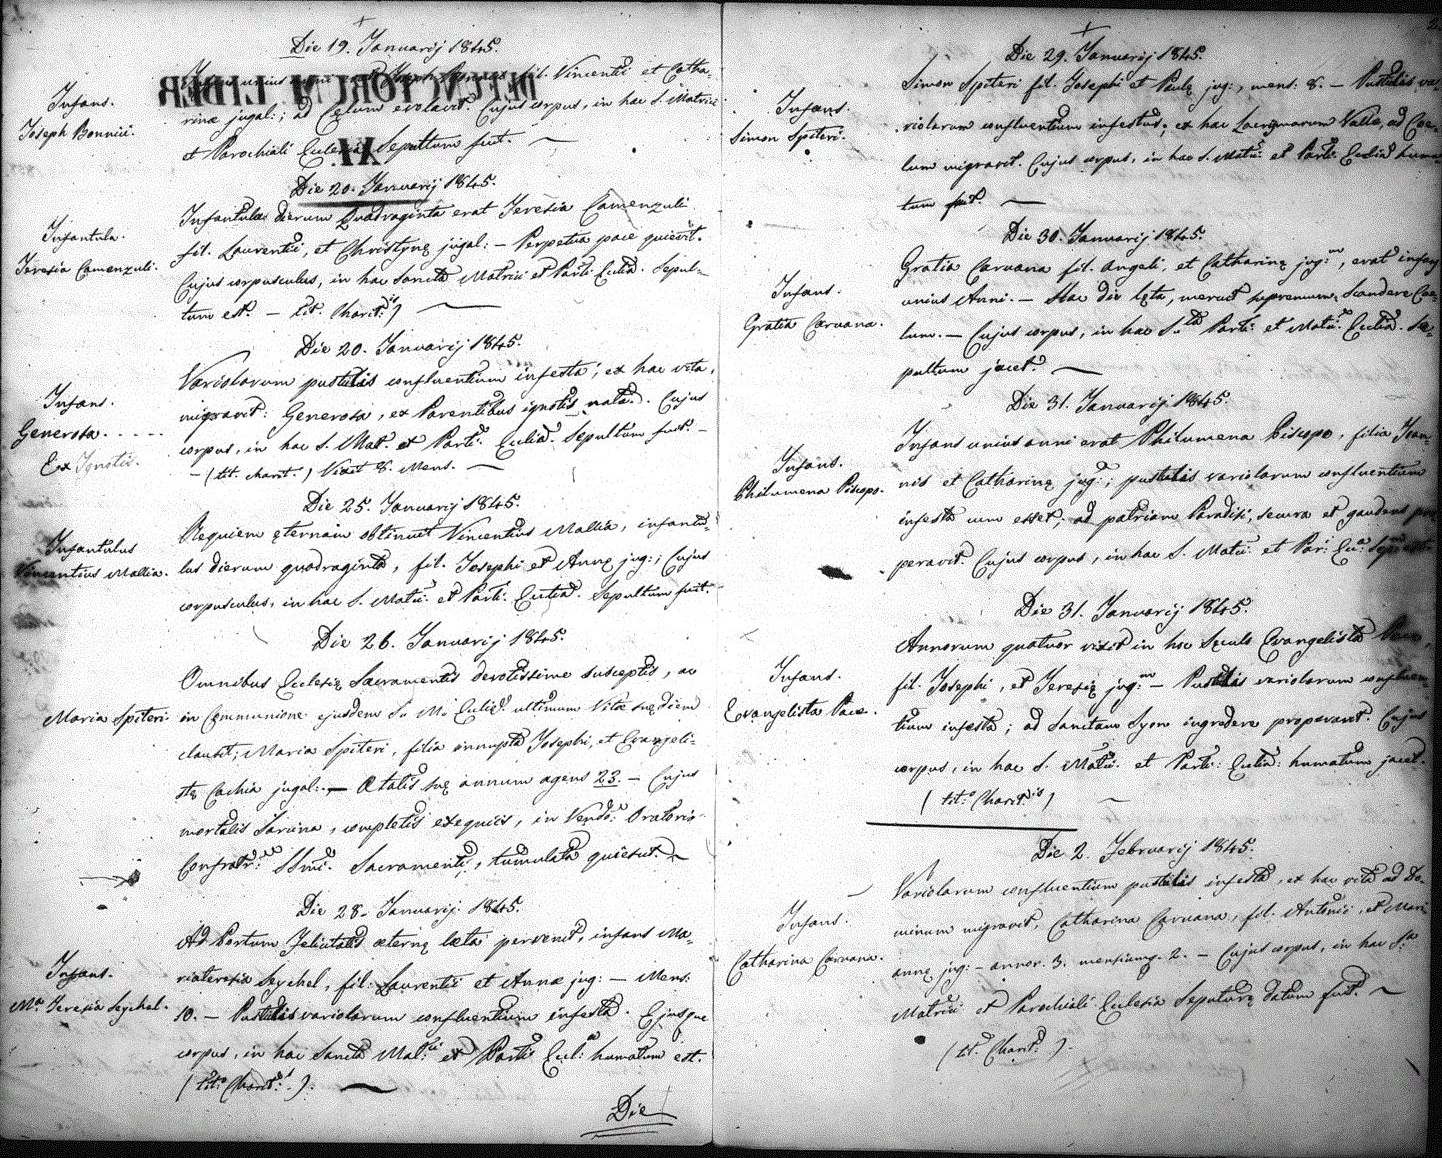 Die 19. Januarij 1845.
Infans.
Joseph Bonnici.
fil. Vincentii et Catha-
rinæ jugal:; ad Cælum evolavit. Cujus corpus, in hac S. Matrici
et Parochiali Ecclesia Sepultum fuit.
DEFUNCTORUM LIBER
XI.
Die 20. Januarij 1845.
Infantula.
Teresia Camenzuli.
Infantula dierum Quadraginta erat Teresia Camenzuli
fil. Laurentii, et Christynę jugal: – Perpetua pace quievit.
Cujus corpusculus, in hac Sancta Matrici et Parli Eccliâ. Sepul-
tum est. – tit. Charit:is)
Die 20. Januarij 1845.
Infans.
Generosa.....
Ex Ignotis.
Variolarum pustulis confluentium infesta, ex hac vita,
migravit: Generosa, ex Parentibus ignotis nata. Cujus
corpus, in hac S. Mat. et Parli. Eccliâ. Sepultum fuit. –
– (tit. charit.) Vixit 8. Mens. –
Die 25. Januarij 1845.
Infantulus
Vincentius Mallia.
Requiem ęternam obtinuit Vincentius Mallia, infantu-
lus dierum quadraginta, fil. Josephi et Annę jug:; Cujus
corpusculus, in hac S. Matri. et Parli. Eccliâ. Sepultum fuit.
Die 26. Januarij 1845.
Maria Spiteri.
Omnibus Ecclesię Sacramentis devotissime susceptis, ac
in Communione ejusdem S. M. Eccliæ. ultimum Vitæ suę diem
clausit, Maria Spiteri, filia innupta Josephi, et Evangeli-
stę Cachia jugal: – Ætatis suę annum agens 23. – Cujus
mortalis Sarcina, completis exequiis, in Vendo: Oratorio
Confratr: SSmi. Sacramenti, tumulata quiescit.
Die 28. Januarij 1845.
Infans.
Ma. Teresia Seychel.
Ad Portum Felicitatis æternę læta pervenit, infans Ma-
riateresia Seychel, fil: Laurentii et Annæ jug: – Mens:
10. – Pustulis variolarum confluentium infesta. Ejusque
corpus, in hac Sancta Mat:ci et Parli Eccl: humatum est.
(tit: Charit:s.).
Die
Die 29. Januarij 1845.
Infans.
Simon Spiteri.
Simon Spiteri fil. Josephi et Paulę jug:, mens: 8. – Pustulis va-
riolarum confluentium infestus, ex hac Lacrymarum Valle, ad Coe-
lum migravit. Cujus corpus, in hac S. Matri: et Parli. Eccliâ huma-
tum fuit.
Die 30. Januarij 1845.
Infans.
Gratia Caruana.
Gratia Caruana fil. Angeli, et Catharinę jug:m, erat infans
unius Anni. – Hac die lęta, meruit supremum Scandere Coe-
lum. – Cujus corpus, in hac S.ta Parli: et Matri: Eccliâ. Se-
pultum jacet.
Die 31. Januarij 1845.
Infans.
Philumena Piscopo.
Infans unius anni erat Philumena Piscopo, filia Joan-
nis et Catharinę jug:; pustulis variolarum confluentium
infesta cum esset, ad patriam Paradisi, secura et gaudens pro-
peravit. Cujus corpus, in hac S. Matri: et Par: Ec:a Sep:m est.
Die 31. Januarij 1845.
Infans.
Evangelista Pace.
Annorum quatuor vixit in hoc Sęculo Evangelista Pace,
fil. Josephi, et Teresię jug:m – Pustulis variolarum confluen-
tium infesta; ad Sanctam Syon ingredere properavit. Cujus
corpus, in hac S. Matri: et Parli: Eccliâ: humatum jacet.
(tit:o Charit:is)
Die 2. Februarij 1845.
Infans.
Catharina Caruana.
Variolarum confluentium pustulis infesta, ex hac vita ad Do-
minum migravit, Catharina Caruana, fil. Antonii, et Mari-
annę jug: – annor. 3. mensiumq. 2. – Cujus corpus, in hac S.a
Matrici et Parochiali Ecclesia Sepulturę datum fuit.
(tit. Charit:).